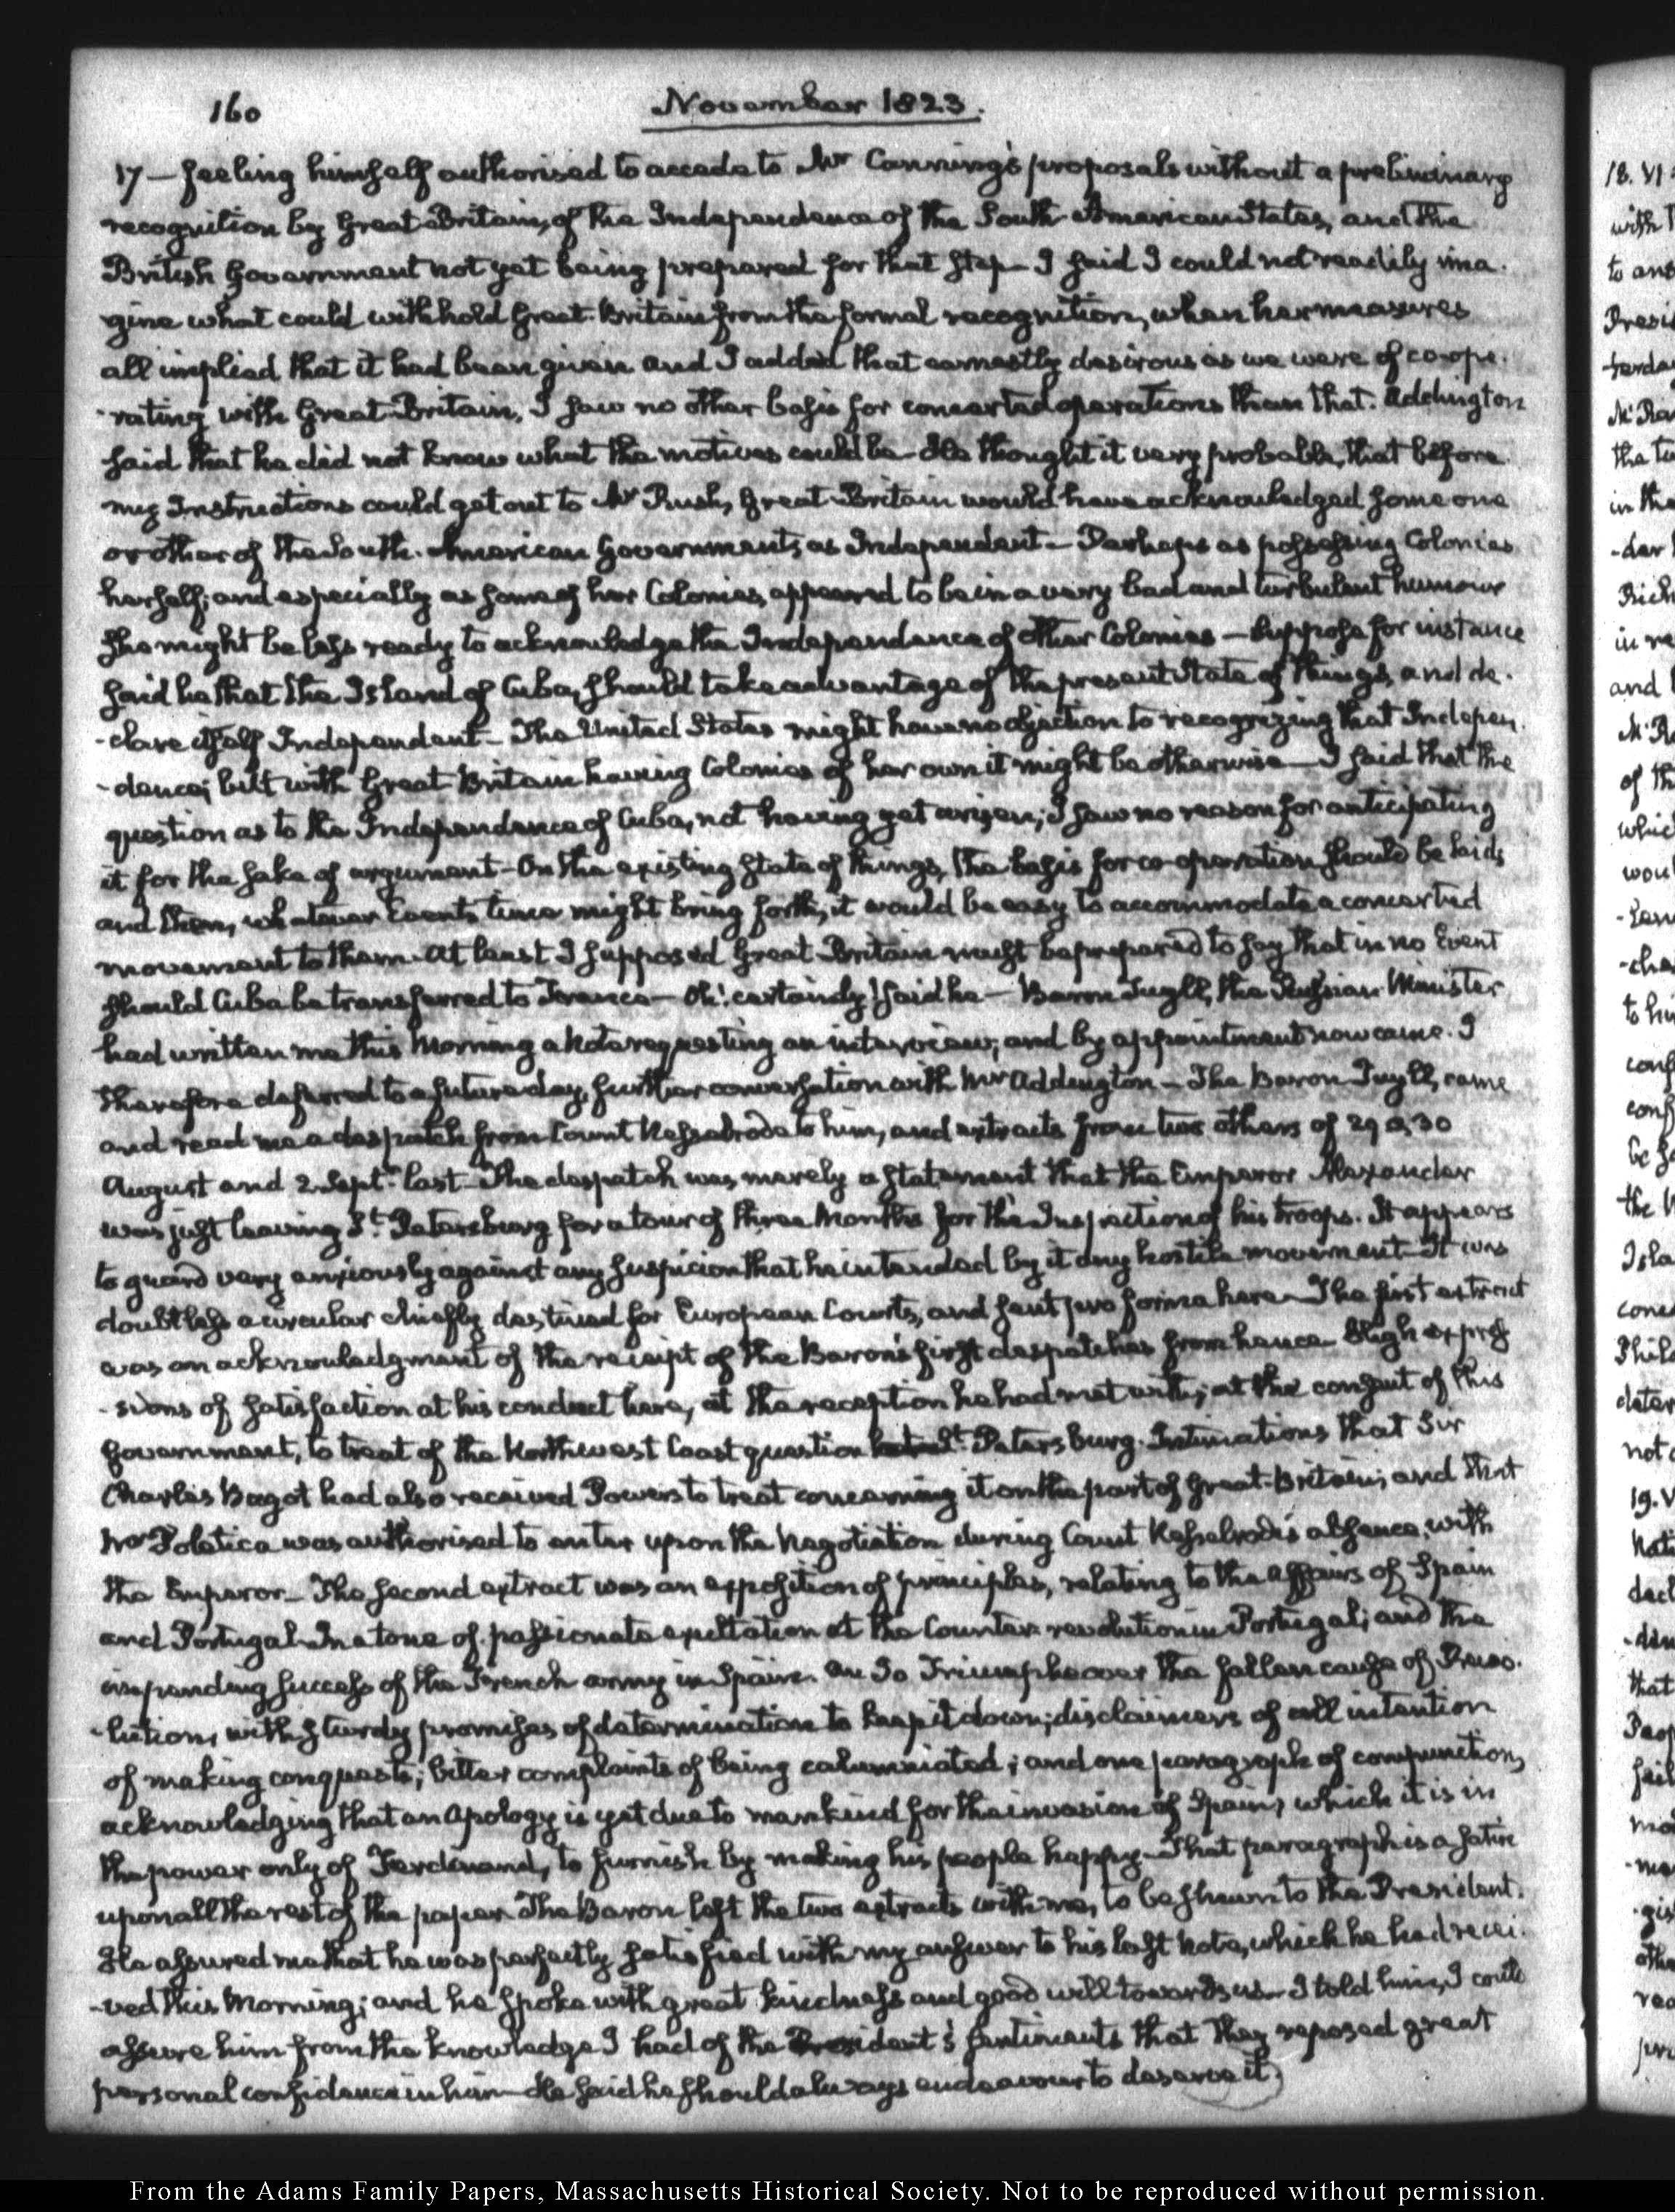 160
November 1823.
17 — feeling himself authorised to accede to Mr Canning's proposals without a preliminary
recognition by Great-Britain, of the Independence of the South-American States, and the
British Government not yet being prepared for that step — I said I could not readily ima-
gine what could withhold Great-Britain from the formal recognition, when her measures
all implied that it had been given and I added that earnestly desirous as we were of co-ope-
-rating with Great-Britain, I saw no other basis for concerted operations than that. Addington
said that he did not know what the motives could be — He thought it very probable, that before
my Instructions could get out to Mr Rush, Great-Britain would have acknowledged some one
or other of the South-American Governments as Independent — Perhaps as possessing Colonies
herself; and especially as some of her Colonies, appeared to be in a very bad and turbulent humour
she might be less ready to acknowledge the Independence of other Colonies — Suppose for instance
said he that the Island of Cuba, should take advantage of the present State of things, and de-
-clare itself Independent — The United States might have no objection to recognizing that Indepen-
-dence; but with Great Britain having Colonies of her own it might be otherwise — I said that the
question as to the Independence of Cuba, not having yet arisen; I saw no reason for anticipating
it for the sake of argument — On the existing state of things, the basis for co-operation should be laid,
and then, whatever Events time might bring forth, it would be easy to accommodate a concerted
movement to them. At least I supposed Great-Britain must be prepared to say that in no Event
should Cuba be transferred to France — Oh! certainly! said he — Baron Tuyll, the Russian Minister
had written me this Morning a Note requesting an interview; and by appointment now came. I
therefore deferred to a future day, further conversation with Mr Addington — The Baron Tuyll, came
and read me a despatch from Count Nesselrode to him, and extracts from two others of 29 a 30
August and 2 Septr. last — The despatch was merely a statement that the Emperor Alexander
was just leaving St. Petersburg for a tour of three Months for the Inspection of his troops. It appears
to guard very anxiously against any suspicion that he intended by it any hostile movement — It was
doubtless a circular chiefly destined for European Courts, and sent pro forma here — The first extract
was an acknowledgment of the receipt of the Baron's first despatches from hence — High expres
-sions of satisfaction at his conduct here, at the reception he had met with; at the consent of this
Government, to treat of the Northwest Coast question St. Petersburg. Intimations that Sir
Charles Bagot had also received Powers to treat concerning it on the part of Great-Britain; and that
Mr Poletica was authorised to enter upon the Negotiation during Count Nesselrode's absence, with
the Emperor — The second extract was an exposition of principles, relating to the affairs of Spain
and Portugal — In a tone of passionate exultation at the Counter-revolution in Portugal; and the
impending success of the French army in Spain. An Io Triumphe over the fallen cause of Revo-
-lution, with sturdy promises of determination to keep it down; disclaimers of all intention
of making conquests; bitter complaints of being calumniated; and one paragraph of compunction,
acknowledging that an Apology is yet due to mankind for the invasion of Spain, which it is in
the power only of Ferdinand, to furnish by making his people happy — That paragraph is a satire
upon all the rest of the paper — The Baron left the two extracts with me, to be shewn to the President.
He assured me that he was perfectly satisfied with my answer to his last Note, which he had recei-
-ved this Morning; and he spoke with great kindness and good will towards us — I told him, I could
assure him from the knowledge I had of the President's sentiments that they reposed great
personal confidence in him — He said he should always endeavour to deserve it.
From the Adams Family Papers, Massachusetts Historical Society. Not to be reproduced without permission.